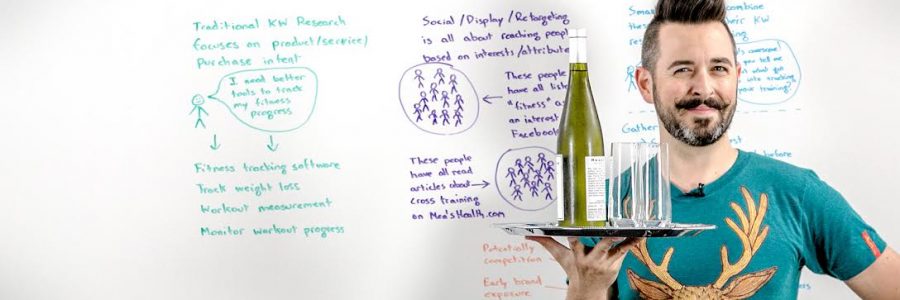 Traditional KW Research
focuses on product/service/
purchase intent
I need better
tools to track
my fitness
progress
Fitness tracking software
Track weight loss
Workout measurement
Monitor workout progress
Social/Display/Retargeting
is all about reaching people
based on interests/attribut
These people
have all list
"fitness" as
an interest
Facebook
These people
have all read
articles about
cross training
on Men'sHealth.com
Potentially
competition
Early brand
exposure
Sma
their KW
res
awesome!
you tell me
into tracking
your training!
Gather
before